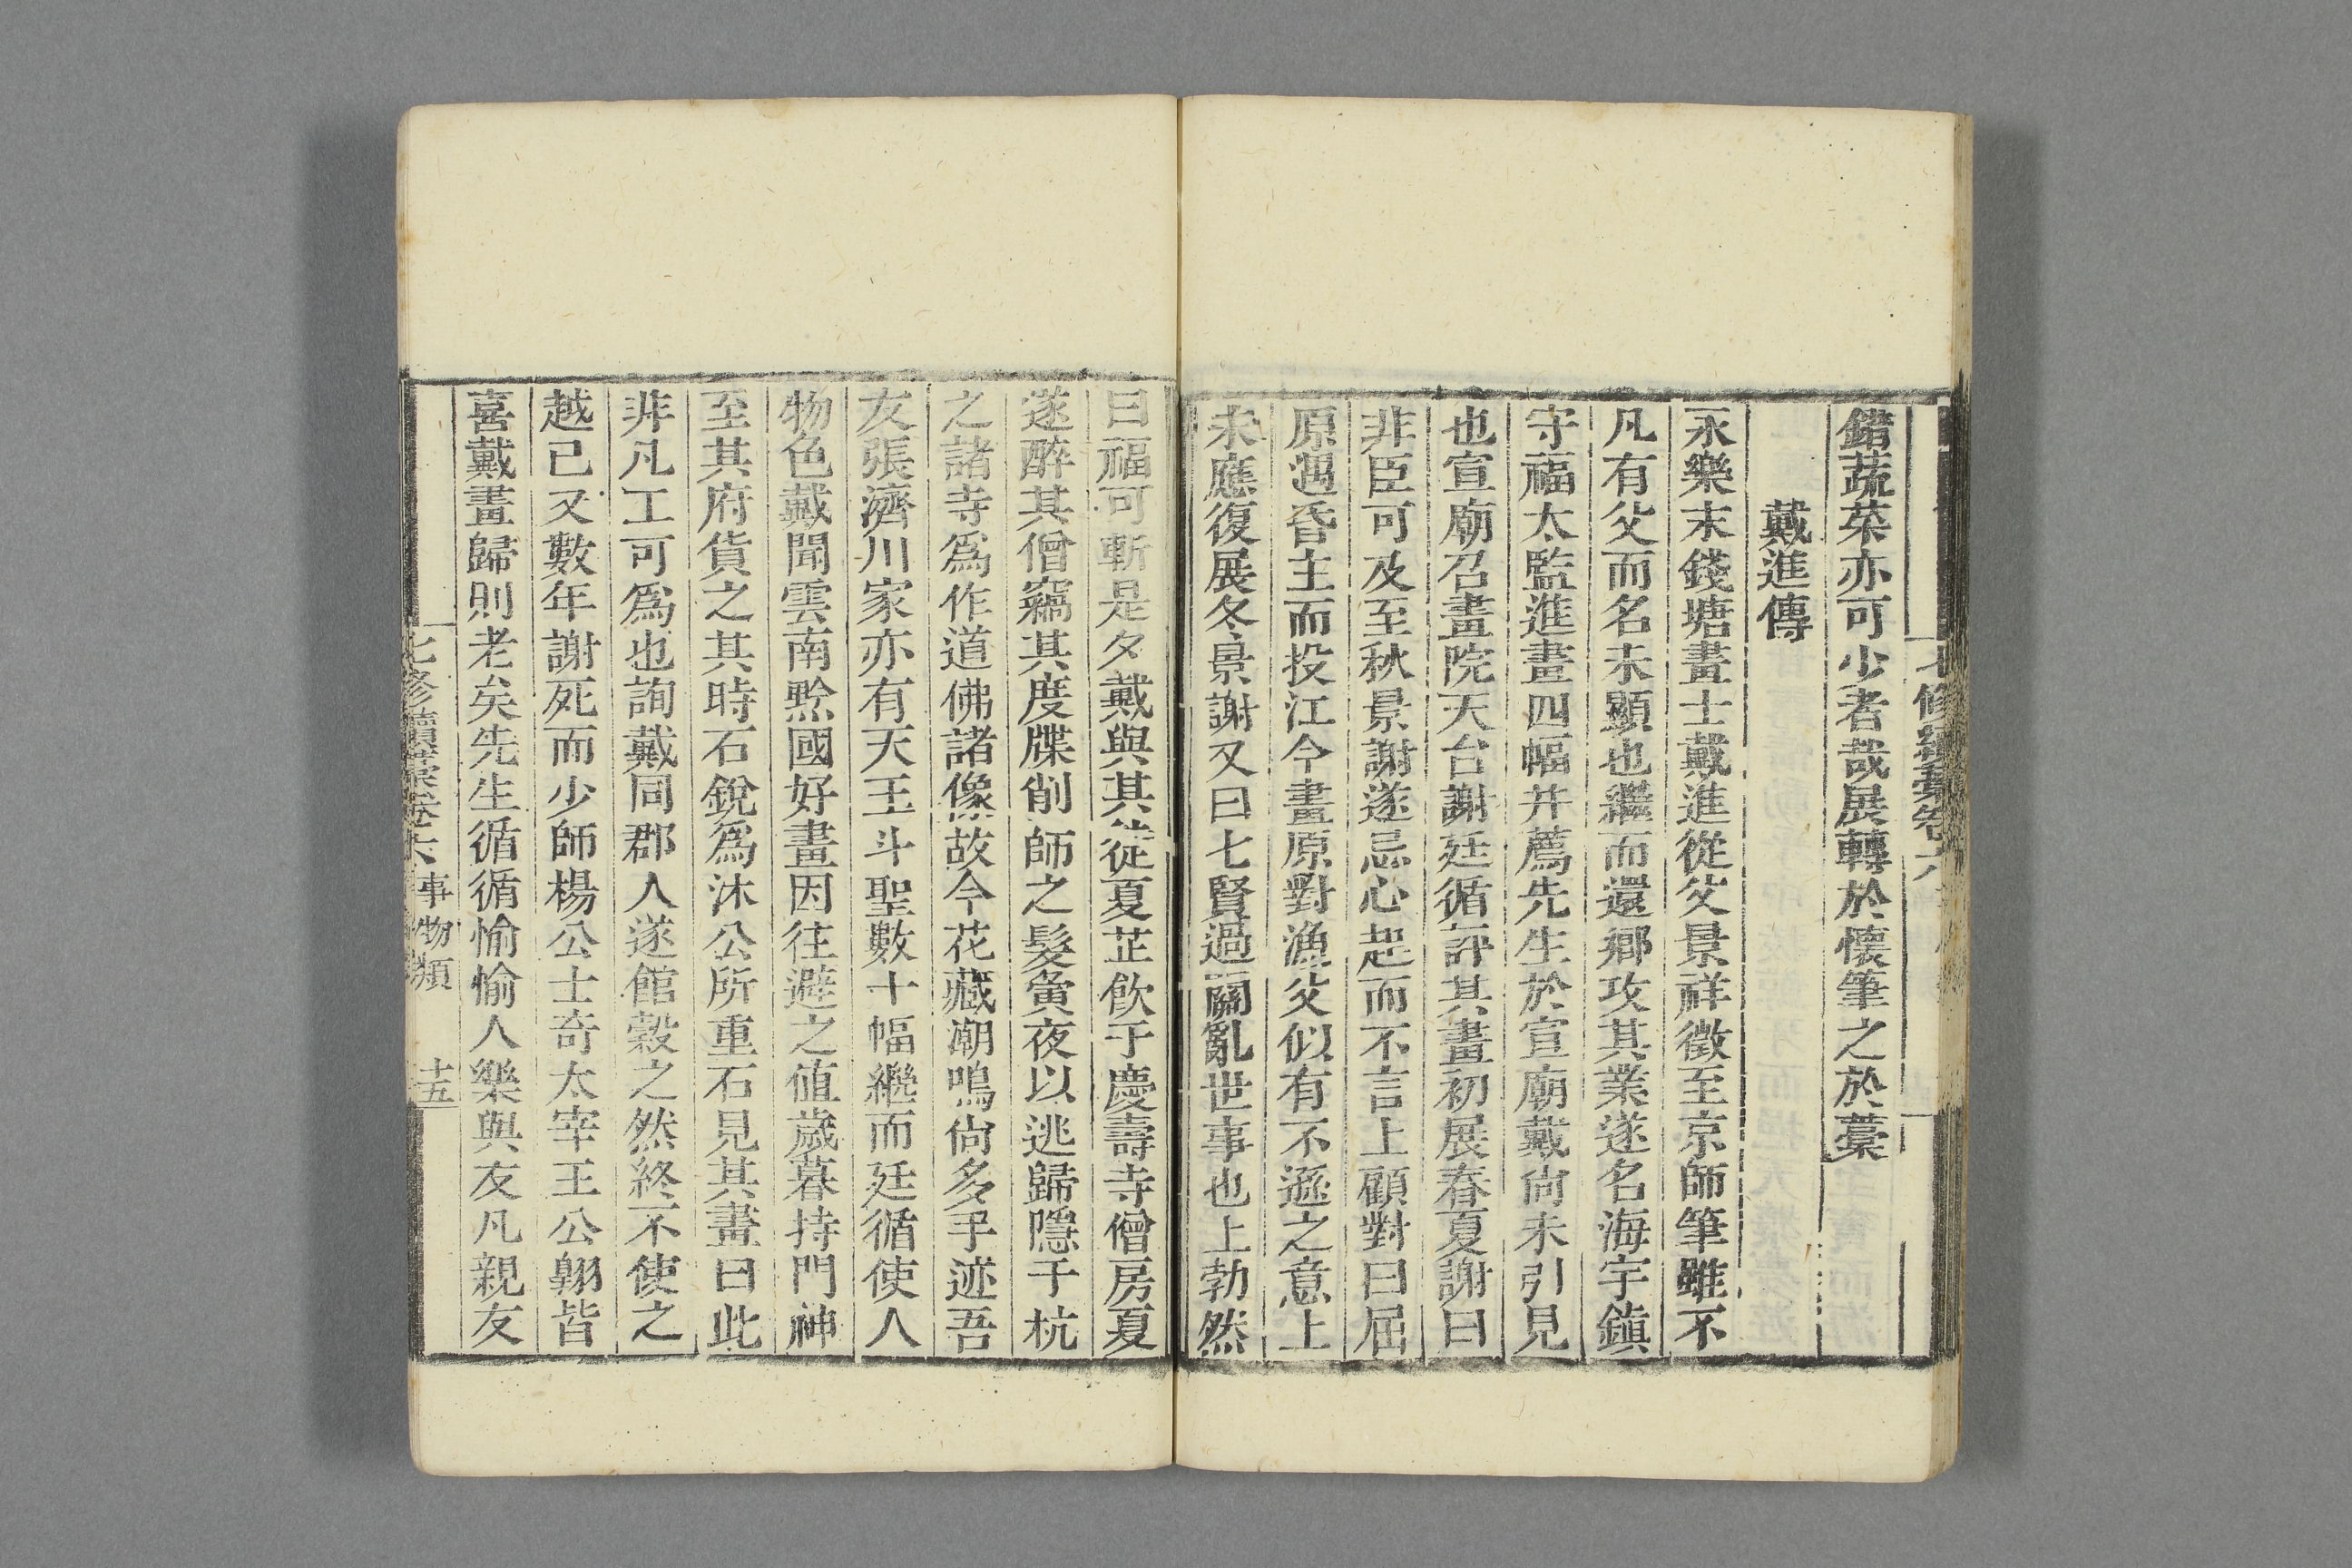 錯蔬菜亦可少者哉展轉於懷筆之於藁
戴進傳
永樂末錢塘畫士戴進從父景祥徵至京師筆雖不
凡有父而名未顯也繼而還鄉攻其業遂名海宇鎮
守福太監進畫四幅并薦先生於宣廟戴尙未引見
也宣廟召畫院天台謝廷循評其畫初展春夏謝曰
非臣可及至秋景謝遂忌心起而不言上顧對曰屈
原遇昏主而投江今畫原對漁父似有不遜之意上
未應復展冬景謝又曰七賢過關亂世事也上勃然
曰福可斬是夕戴與其徒夏芷飮于慶壽寺僧房夏
遂醉其僧竊其度牒削師之髮夤夜以逃歸隱于杭
之諸寺爲作道佛諸像故今花藏潮鳴尙多手迹吾
友張濟川家亦有天王斗聖數十幅繼而廷循使人
物色戴聞雲南黔國好畫因往避之値歲暮持門神
至其府貨之其時石銳爲沐公所重石見其畫曰此
非凡工可爲也詢戴同郡人遂館穀之然終不使之
越已又數年謝死而少師楊公士奇太宰王公翺皆
喜戴畫歸則老矣先生循循愉愉人樂與友凡親友
七修續藁卷六 事物類 十五